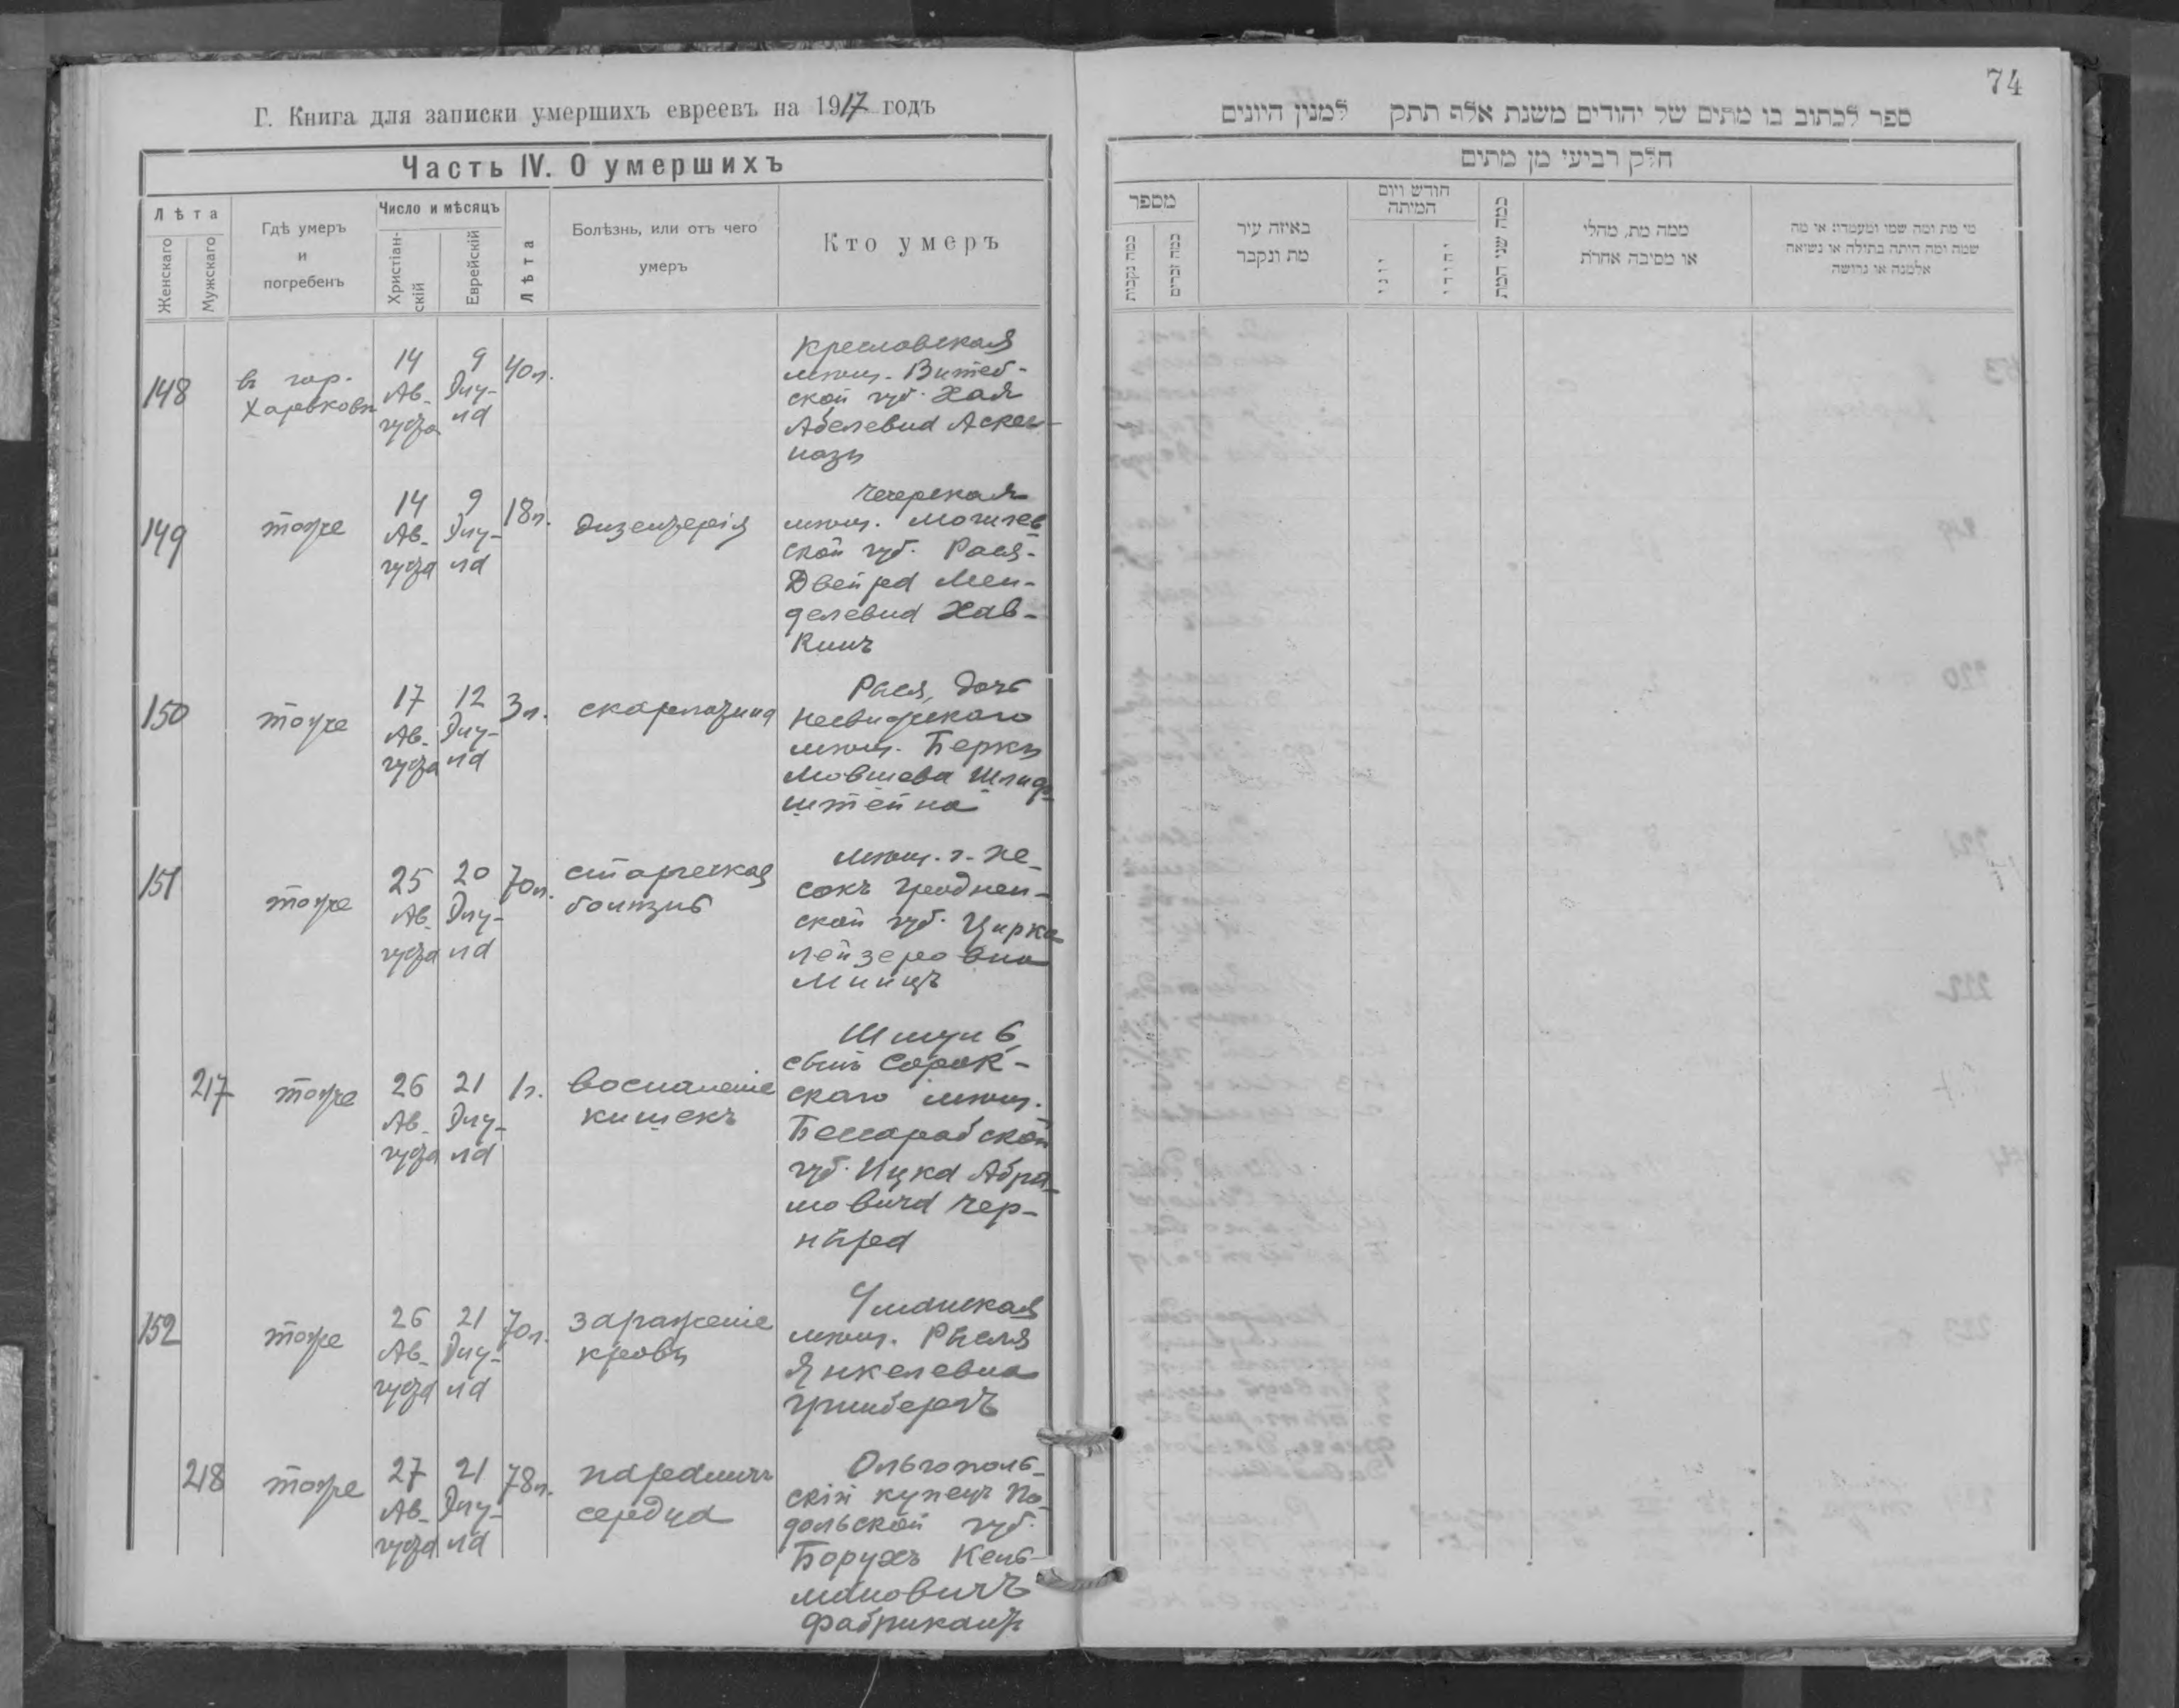 Г. Книга для записки умершихъ евреевъ на 1917 годъ
Часть IV. О умершихъ
Лѣта
Женскаго
Мужскаго
Гдѣ умеръ
и
погребенъ
Число и мѣсяцъ
Христіан-
скій
Еврейскій
Лѣта
Болѣзнь, или отъ чего
умеръ
Кто умеръ
148
въ гор.
Харьковѣ
14
Ав-
густа
9
Элу-
ла
40 л.
Креславская
мѣщ. Витеб-
ской губ. Хая
Абелевна Аскен-
пази
149
тоже
14
Ав-
густа
9
Элу-
ла
18 л.
дизентерія
Чечерская
мѣщ. Могилев
ской губ. Рася-
Двейра Мен-
делевна Хав-
кинъ
150
тоже
17
Ав-
густа
12
Элу-
ла
3 л.
скарлатина
дочь
Несвижскаго
мѣщ. Берки
Мовшева
штейна
151
тоже
25
Ав-
густа
20
Элу-
ла
70 л.
старческая
болѣзнь
мѣщ. г.
Гроднен-
ской губ. Цирка
Лейзеровна
Минцъ
217
тоже
26
Ав-
густа
21
Элу-
ла
1 г.
воспаленіе
кишекъ
Шмуль
сынъ Сорок-
скаго мѣщ.
Бессарабской
губ. Ицка Абра-
мовича Чер-
няра
152
тоже
26
Ав-
густа
21
Элу-
ла
70 л.
зараженіе
крови
Уманская
мѣщ. Рыся
Янкелевна
Гринбергъ
218
тоже
27
Ав-
густа
21
Элу-
ла
78 л.
параличъ
сердца
Ольгополь-
скій купецъ По-
дольской губ.
Борухъ Кель-
мановичъ
Фабрикантъ
74
ספר לכתוב בו מתים של יהודים משנת אלף תתק למנין היונים
חלק רביעי מן מתים
מספר
כמה נקבות
כמה זכרים
באיזה עיר
מת ונקבר
חודש ויום
המיתה
יוני
יהודי
כמה שני המת
ממה מת, מהלי
או מסיבה אחרת
מי מת ומה שמו ומעמדו או מה
שמה ומה היתה בתולה או נשואה
אלמנה או גרושה